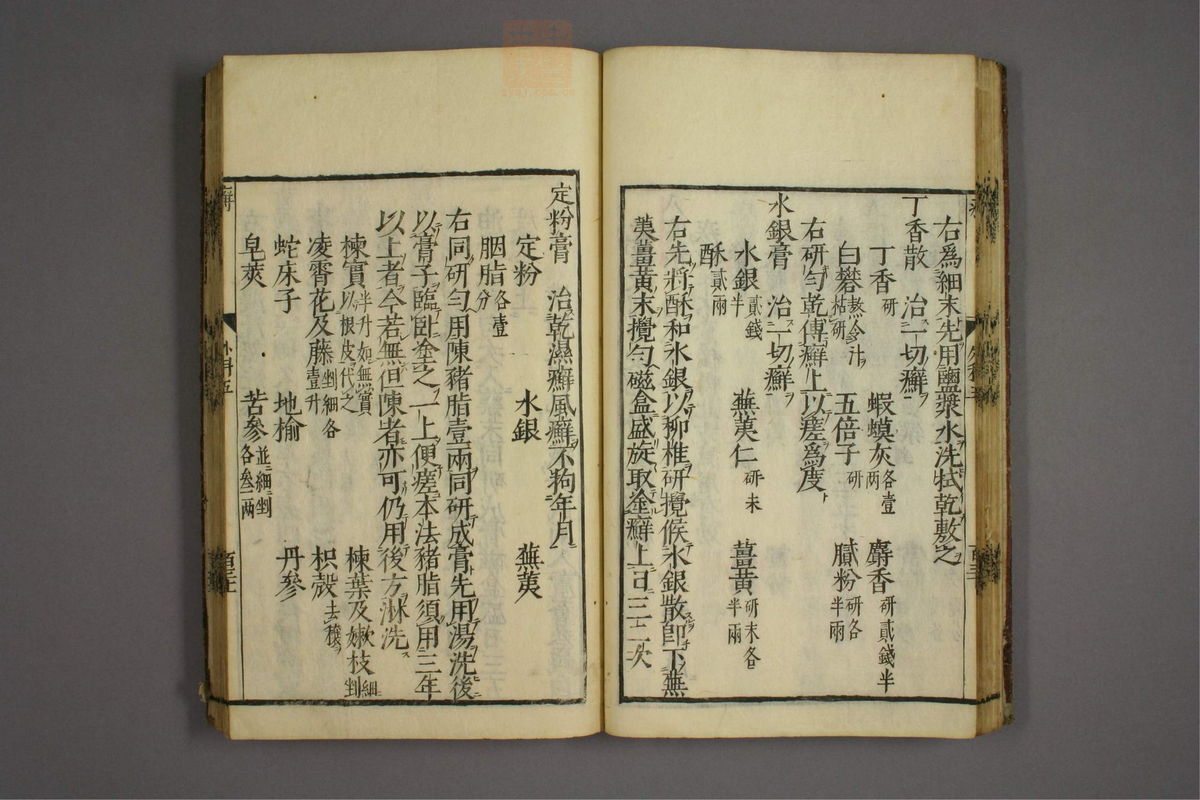 右爲細末先用鹽漿水洗拭乾敷之
丁香散 治一切癬
丁香研 蝦蟇灰各壹兩 麝香研貳錢半
白礬熬令汁枯研 五倍子研 膩粉研各半兩
右研勻乾傅癬上以瘥爲度
水銀膏 治一切癬
水銀貳錢半 蕪荑仁研末 薑黃研末各半兩
酥貳兩
右先將酥和水銀以柳椎研攪候水銀散卽下蕪
荑薑黃末攪勻磁盒盛旋取塗癬上日三二次
定粉膏 治乾濕癬風癬不狗年月
定粉 水銀 蕪荑
胭脂各壹分
右同研勻用陳豬脂壹兩同研成膏先用湯洗後
以膏子臨臥塗之一上便瘥本法豬脂須用三年
以上者今若無但陳者亦可仍用後方淋洗
楝實半升如無實以根皮代之 楝葉及嫩枝細剉
凌霄花及藤剉細各壹升 枳殼去穰
蛇床子 地榆 丹參
皂莢 苦參並細剉各叁兩